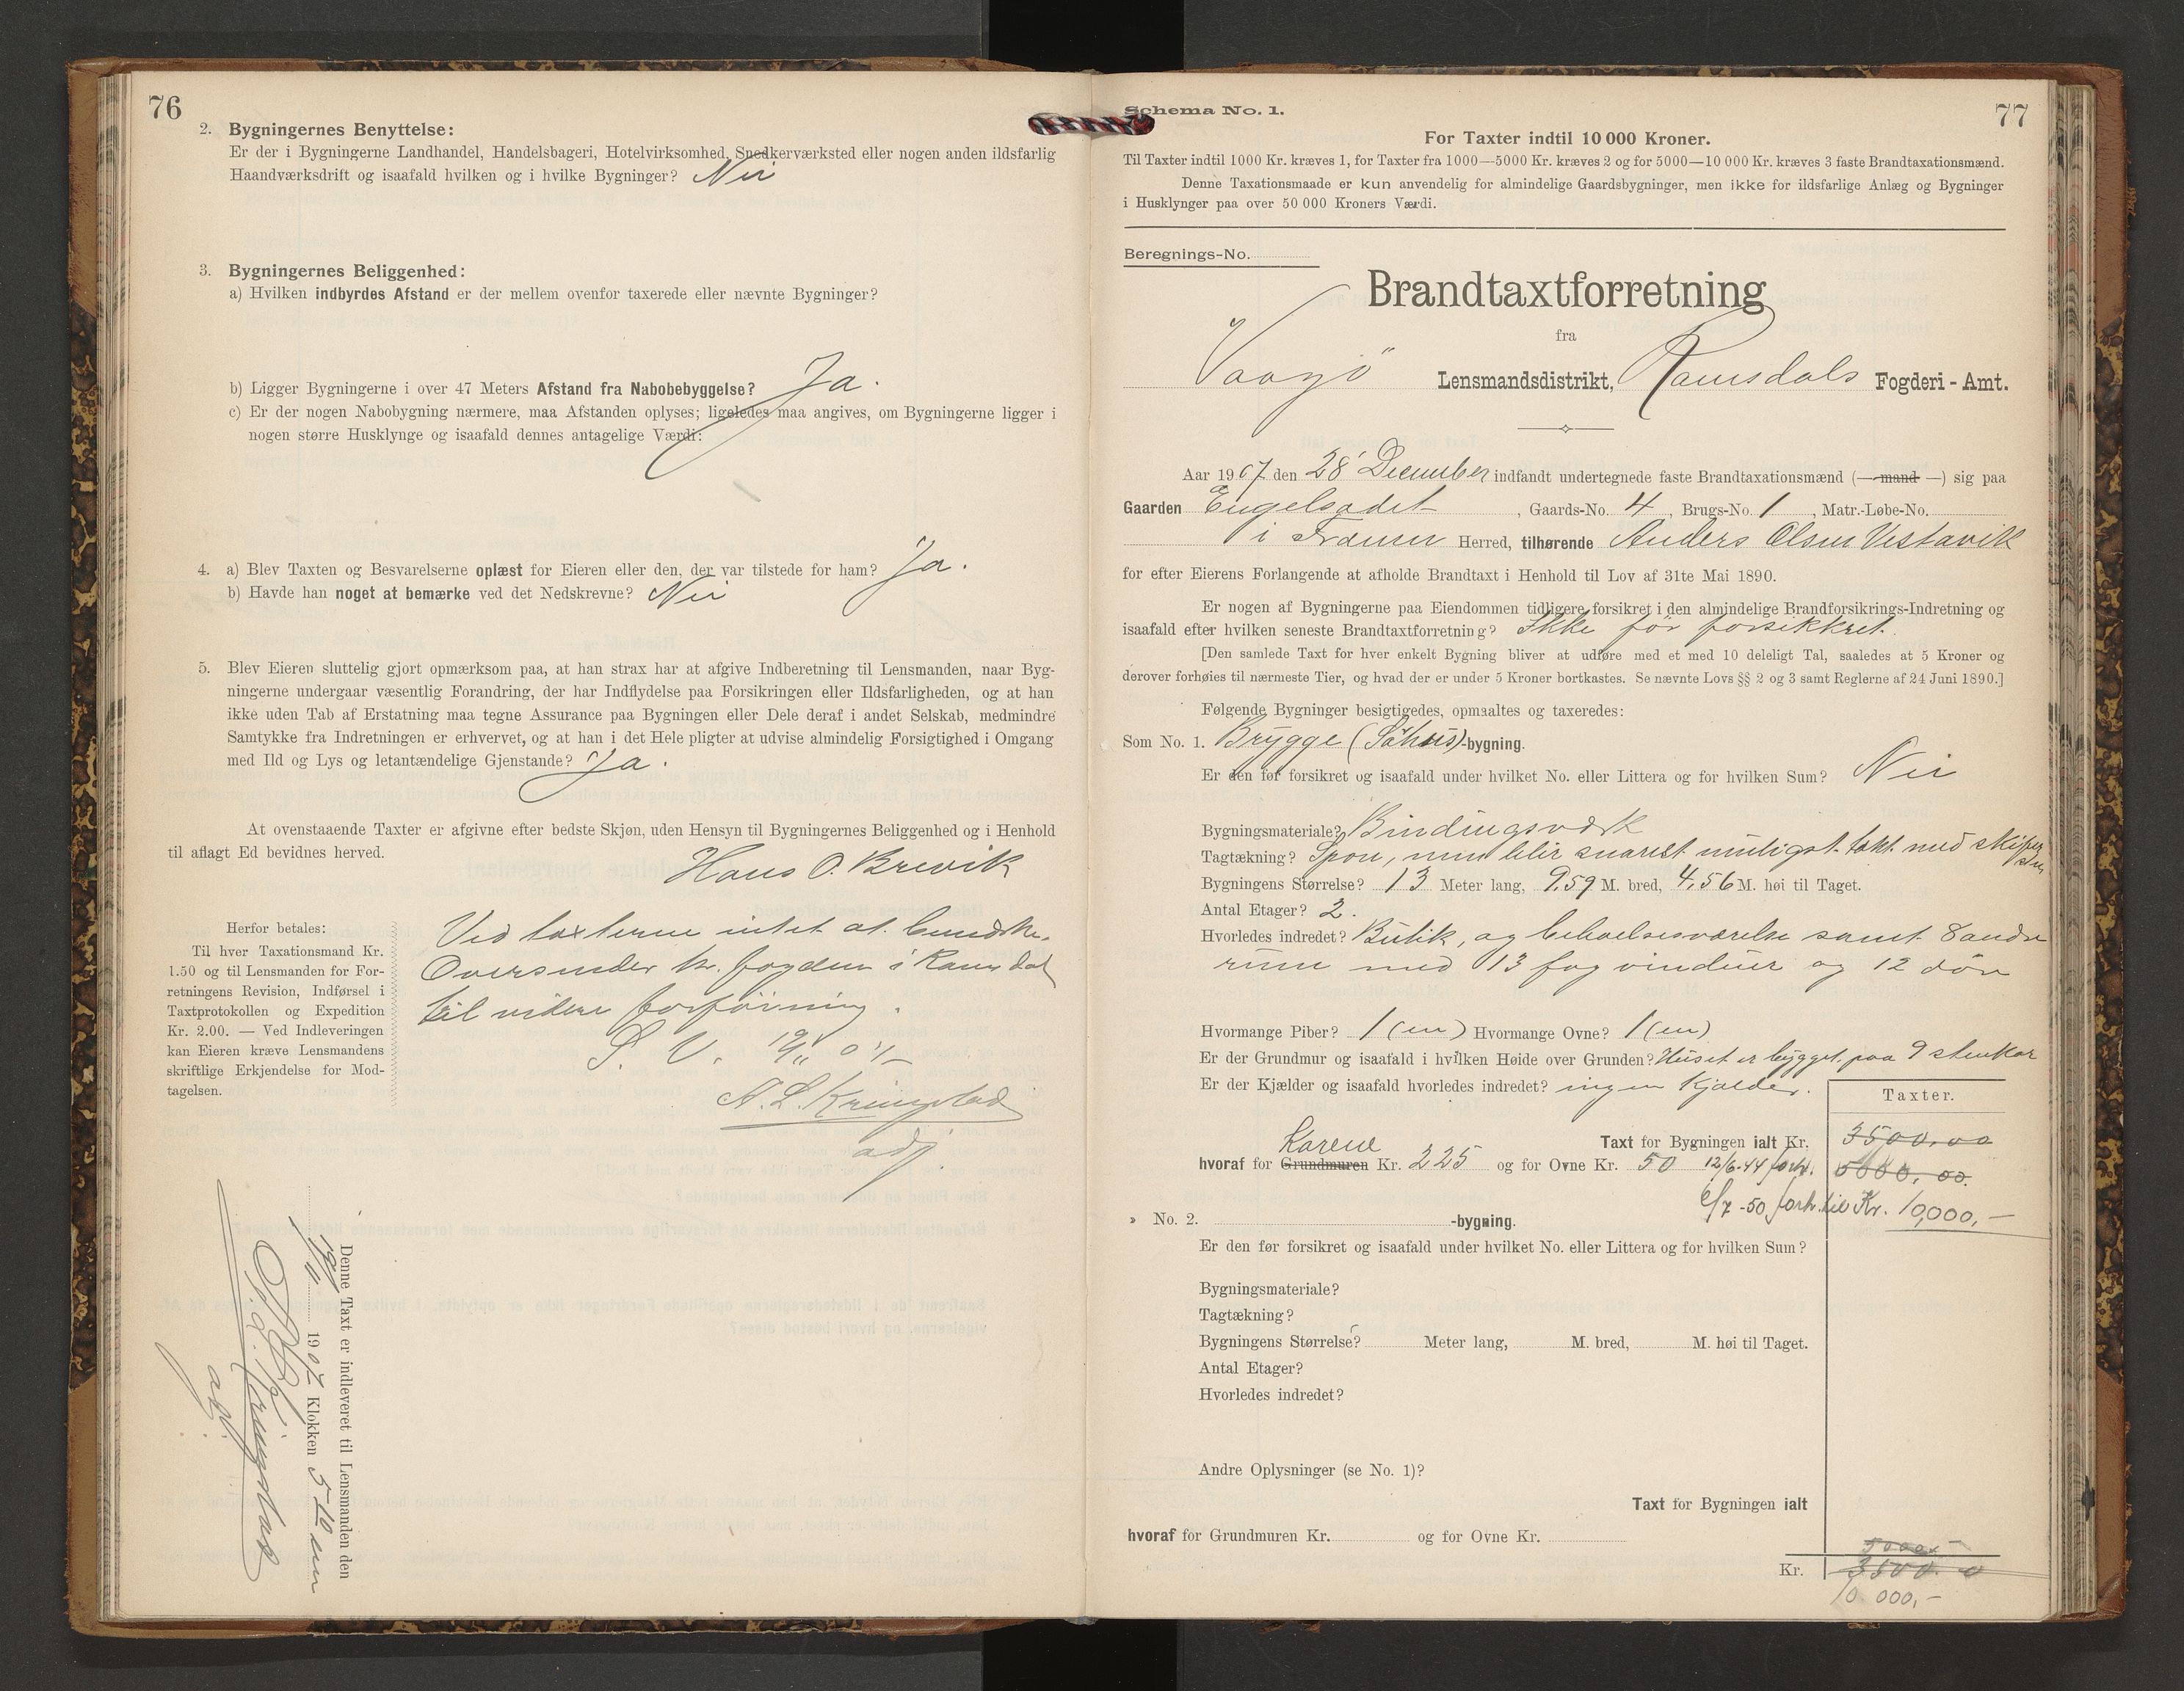 76
2. Bygningernes Benyttelse:
Er der i Bygningerne Landhandel, Handelsbageri, Hotelvirksomhed, Snedkerværksted eller nogen anden ildsfarlig
Haandværksdrift og isaafald hvilken og i hvilke Bygninger? Nei
3. Bygningernes Beliggenhed:
a) Hvilken indbyrdes Afstand er der mellem ovenfor taxerede eller nævnte Bygninger?
b) Ligger Bygningerne i over 47 Meters Afstand fra Nabobebyggelse? Ja.
c) Er der nogen Nabobygning nærmere, maa Afstanden oplyses; ligeledes maa angives, om Bygningerne ligger i
nogen større Husklynge og isaafald dennes antagelige Værdi:
4. a) Blev Taxten og Besvarelserne oplæst for Eieren eller den, der var tilstede for ham? Ja.
b) Havde han noget at bemærke ved det Nedskrevne? Nei
5. Blev Eieren sluttelig gjort opmærksom paa, at han strax har at afgive Indberetning til Lensmanden, naar Byg-
ningerne undergaar væsentlig Forandring, der har Indflydelse paa Forsikringen eller Ildsfarligheden, og at han
ikke uden Tab af Erstatning maa tegne Assurance paa Bygningen eller Dele deraf i andet Selskab, medmindre
Samtykke fra Indretningen er erhvervet, og at han i det Hele pligter at udvise almindelig Forsigtighed i Omgang
med Ild og Lys og letantændelige Gjenstande? Ja.
At ovenstaaende Taxter er afgivne efter bedste Skjøn, uden Hensyn til Bygningernes Beliggenhed og i Henhold
til aflagt Ed bevidnes herved.
Hans O. Brevik
Herfor betales:
Til hver Taxationsmand Kr.
1.50 og til Lensmanden for For-
retningens Revision, Indførsel i
Taxtprotokollen og Expedition
Kr. 2.00. — Ved Indleveringen
kan Eieren kræve Lensmandens
skriftlige Erkjendelse for Mod-
tagelsen.
Ved taxterne intet at bemærke.
Oversendes hr. fogden i Romsdal
til videre forføining.
S. V. 19/11 07
A. L. Kringstad
adj.
Denne Taxt er indleveret til Lensmanden den
19/11 1907 Klokken 5-10 em
Kringstad
adj.
77
Schema No. 1.
For Taxter indtil 10 000 Kroner.
Til Taxter indtil 1000 Kr. kræves 1, for Taxter fra 1000—5000 Kr. kræves 2 og for 5000—10 000 Kr. kræves 3 faste Brandtaxationsmænd.
Denne Taxationsmaade er kun anvendelig for almindelige Gaardsbygninger, men ikke for ildsfarlige Anlæg og Bygninger
i Husklynger paa over 50 000 Kroners Værdi.
Beregnings-No.
Brandtaxtforretning
fra
Vaagö Lensmandsdistrikt, Romsdals Fogderi - Amt.
Aar 1907 den 28 December indfandt undertegnede faste Brandtaxationsmænd (— mand —) sig paa
Gaarden Engelsådet, Gaards-No. 4, Brugs-No. 1, Matr.-Løbe-No.
i Frænen Herred, tilhørende Anders Olsen Vestavik
for efter Eierens Forlangende at afholde Brandtaxt i Henhold til Lov af 31te Mai 1890.
Er nogen af Bygningerne paa Eiendommen tidligere forsikret i den almindelige Brandforsikrings-Indretning og
isaafald efter hvilken seneste Brandtaxtforretning? Ikke før forsikkret.
[Den samlede Taxt for hver enkelt Bygning bliver at udføre med et med 10 deleligt Tal, saaledes at 5 Kroner og
derover forhøies til nærmeste Tier, og hvad der er under 5 Kroner bortkastes. Se nævnte Lovs §§ 2 og 3 samt Reglerne af 24 Juni 1890.]
Følgende Bygninger besigtigedes, opmaaltes og taxeredes:
Som No. 1. Brygge (Söhus)-bygning.
Er den før forsikret og isaafald under hvilket No. eller Littera og for hvilken Sum? Nei
Bygningsmateriale? Bindingsværk
Tagtækning? Spon, men blir snarest muligst takt med skifer
sten
Bygningens Størrelse? 13 Meter lang, 9,59 M. bred, 4,56 M. høi til Taget.
Antal Etager? 2.
Hvorledes indredet? Butik, og beboelsesværelse samt 8 andre
rum med 13 fag vinduer og 12 dör
Hvormange Piber? 1 (en) Hvormange Ovne? 1 (en)
Er der Grundmur og isaafald i hvilken Høide over Grunden? Huset er bygget paa 9 stenkar
Er der Kjælder og isaafald hvorledes indredet? ingen Kjalder.
Taxter.
Taxt for Bygningen ialt Kr. 3500,00
Karene
hvoraf for Grundmuren Kr. 225 og for Ovne Kr. 50 12/6-44 forh. 5000,00.
/7 -50 forh. til Kr. 10,000,-
» No. 2. -bygning.
Er den før forsikret og isaafald under hvilket No. eller Littera og for hvilken Sum?
Bygningsmateriale?
Tagtækning?
Bygningens Størrelse? Meter lang, M. bred, M. høi til Taget.
Antal Etager?
Hvorledes indredet?
Andre Oplysninger (se No. 1)?
Taxt for Bygningen ialt
hvoraf for Grundmuren Kr. og for Ovne Kr.
5000,-
Kr. 3500.
10 000,-